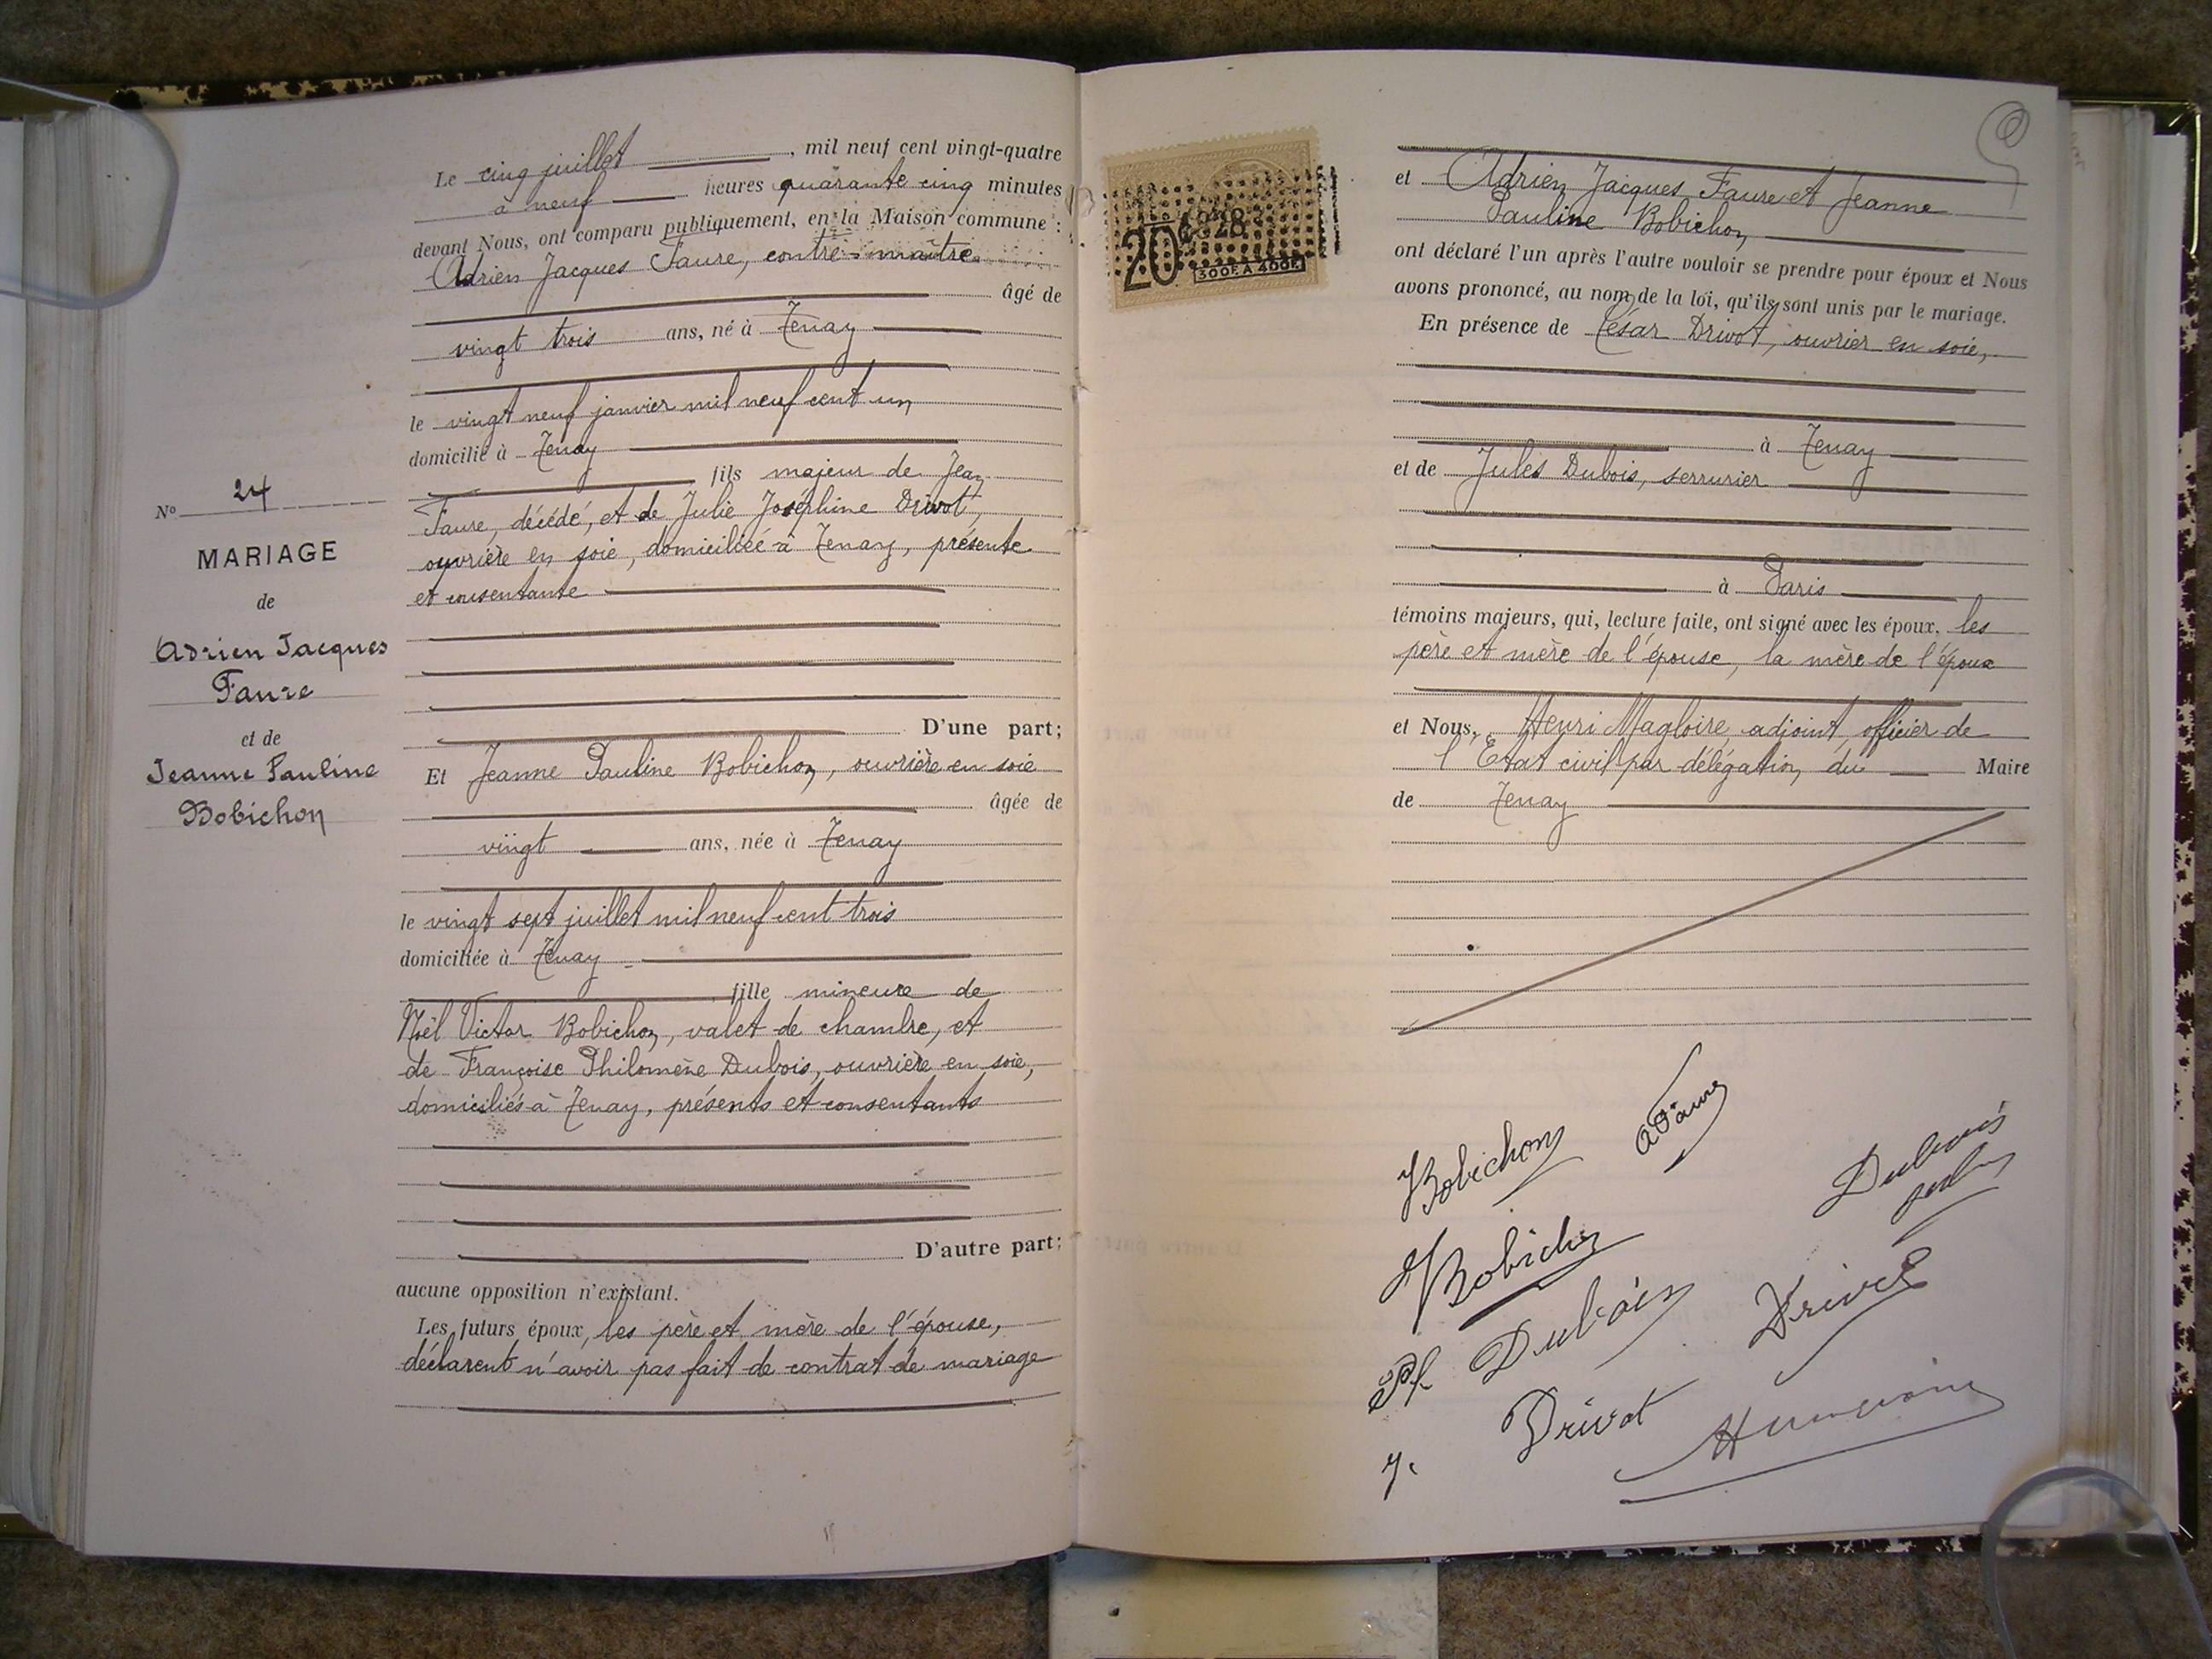 Le cinq juillet, mil neuf cent vingt-quatre
à neuf heures quarante cinq minutes
devant Nous, ont comparu publiquement, en la Maison commune :
Adrien Jacques Faure, contre-maître
âgé de
vingt trois ans, né à Tenay
le vingt neuf janvier mil neuf cent un
domicilié à Tenay
fils majeur de Jean
Faure, décédé, et de Julie Joséphine Drivot,
ouvrière en soie, domiciliée à Tenay, présente
et consentante
D'une part;
Et Jeanne Pauline Bobichon, ouvrière en soie
âgée de
vingt ans, née à Tenay
le vingt sept juillet mil neuf cent trois
domiciliée à Tenay
fille mineure de
Noël Victor Bobichon, valet de chambre, et
de Françoise Philomène Dubois, ouvrière en soie,
domiciliés à Tenay, présents et consentants
D'autre part;
aucune opposition n'existant.
Les futurs époux, les père et mère de l'épouse,
déclarent n'avoir pas fait de contrat de mariage
No 24
MARIAGE
de
Adrien Jacques
Faure
et de
Jeanne Pauline
Bobichon
20
300F. A 400F.
et Adrien Jacques Faure et Jeanne
Pauline Bobichon
ont déclaré l'un après l'autre vouloir se prendre pour époux et Nous
avons prononcé, au nom de la loi, qu'ils sont unis par le mariage.
En présence de César Drivot, ouvrier en soie,
à Tenay
et de Jules Dubois, serrurier
à Paris
témoins majeurs, qui, lecture faite, ont signé avec les époux, les
père et mère de l'épouse, la mère de l'époux
et Nous, Henri Magloire adjoint, officier de
l'Etat civil par délégation du Maire
de Tenay
Bobichon
A Faure
Dubois
Bobichon
Dubois
Drivot
Drivot